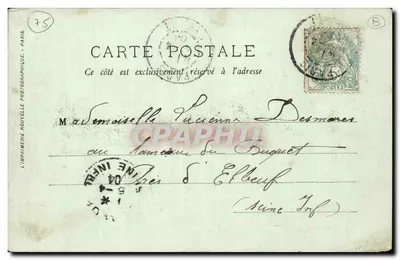 75
B
CARTE POSTALE
Ce côté est exclusivement réservé à l'adresse
L'IMPRIMERIE NOUVELLE PHOTOGRAPHIQUE - PARIS.
Mademoiselle Lucienne Desmares
au hameau du Buquet
près d'Elbeuf
(Seine Inf)
CPARAMA
INE INFRE
5-4
04